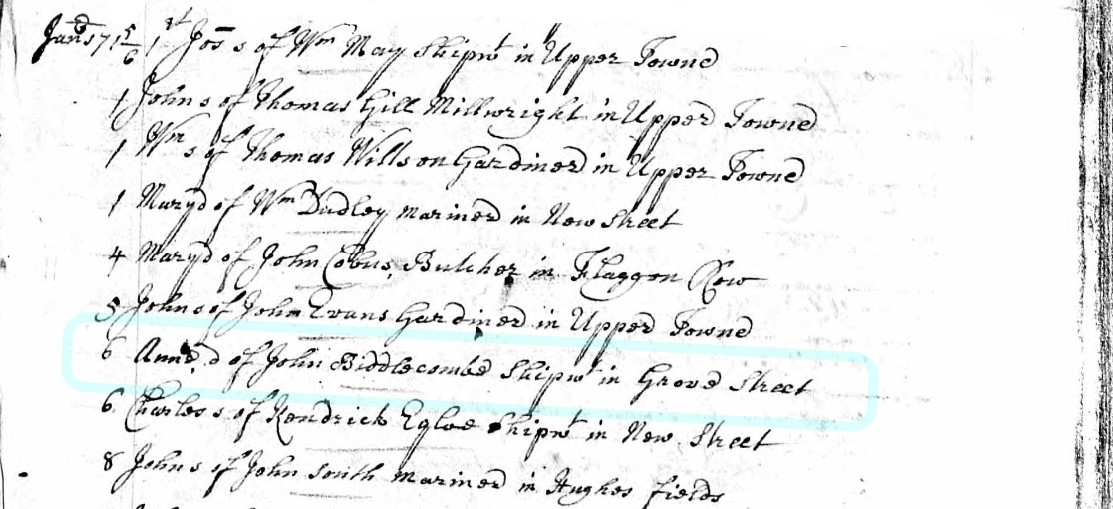 Janry 171 5/6 1st Jos s of Wm May Shipwt in Upper Towne
1 John s of Thomas Gill Millwright in Upper Towne
1 Wm s of Thomas Willson Gardiner in Upper Towne
1 Mary d of Wm Dudley Mariner in New Street
4 Mary d of John Cobus Butcher in Flaggon Row
5 John s of John Evans Gardiner in Upper Towne
6 Anne d of John Biddlecombe Shipwt in Grove Street
6 Charles s of Kendrick Egloe Shipwt in New Street
8 John s of John South Mariner in Hughes fields